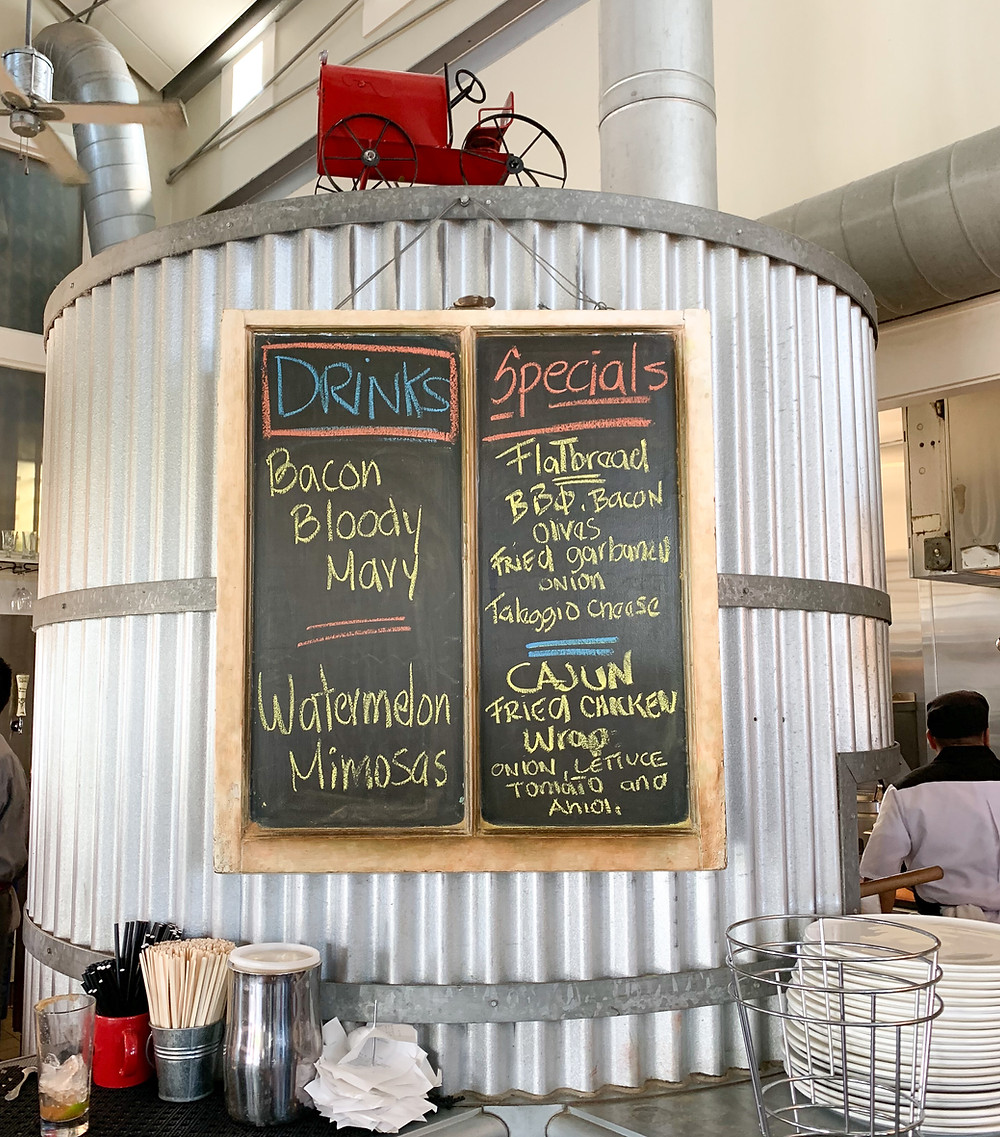 DRINKS
Bacon
Bloody
Mary
Watermelon
Mimosas
Specials
Flatbread
BBQ. BACON
olives
FRied garbanzo
onion
Taleggio cheese
CAJUN
FRied CHICKEN
Wrap
ONION, LETTUCE
TOMATO and